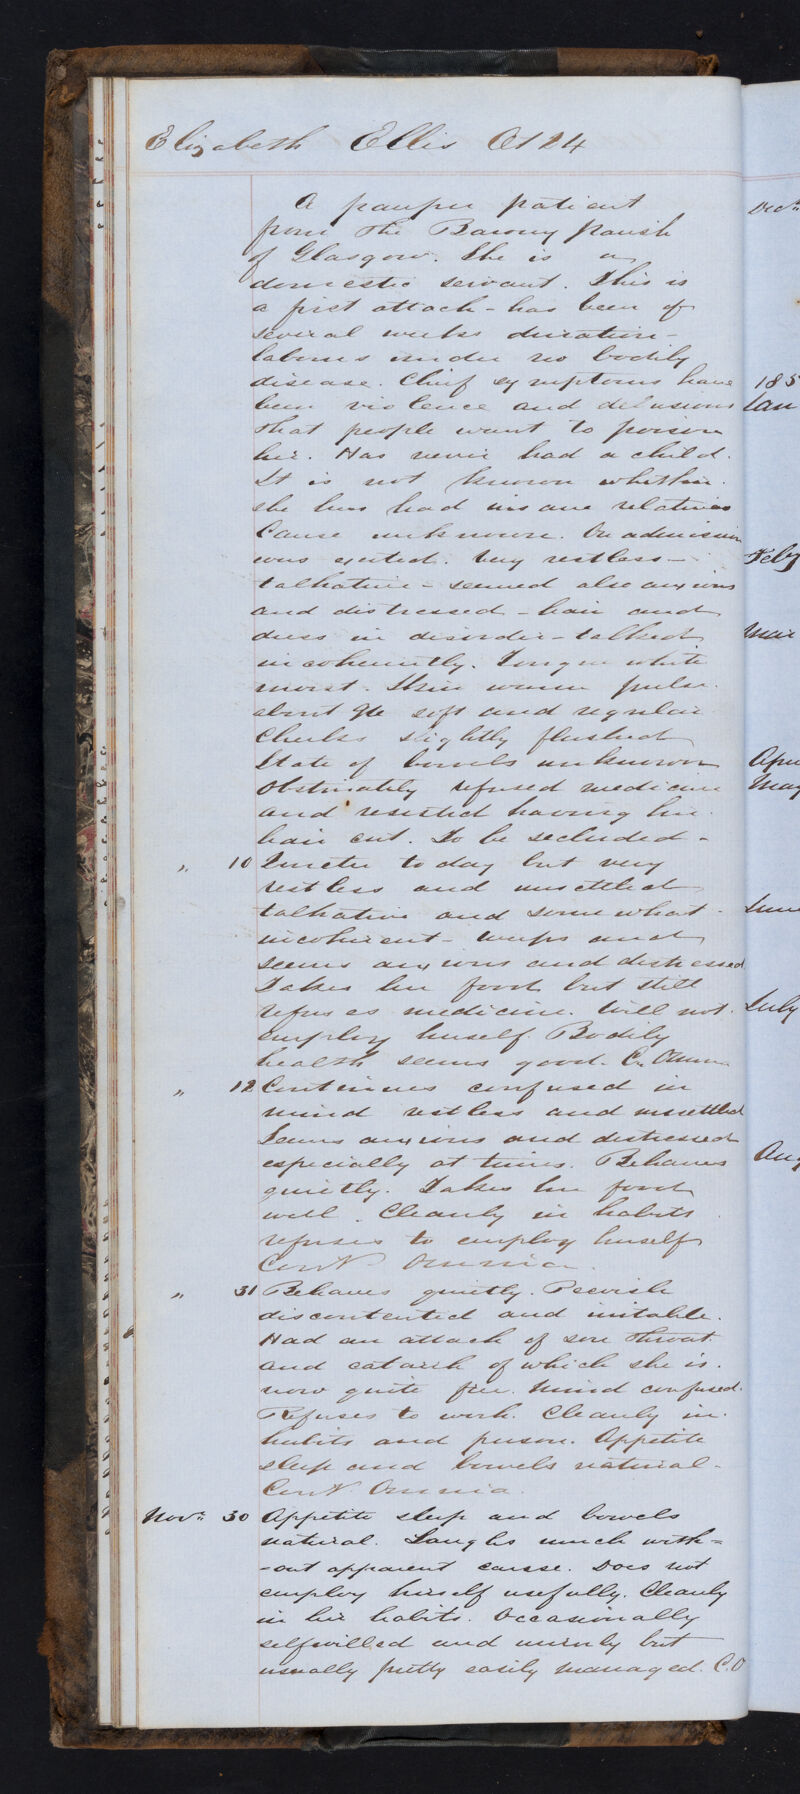 Elizabeth Ellis Æt 24
A pauper patient
from the Barony Parish
of Glasgow. She is a
domestic servant. This is
a first attack - has been of
several weeks duration -
labours under no bodily
disease. Chief symptoms have
been violence and delusions
that people want to poison
her. Has never had a child.
It is not known whether
she has had insane relatives
Cause unknown. On admission
was excited. Very restless -
talkative - seemed also anxious
and distressed - hair and
dress in disorder - talked
incoherently. Tongue white
moist. Skin warm pulse
about 98 soft and regular
Cheeks slightly flushed
State of bowels unknown
Obstinately refused medicine
and resisted having her
hair cut. To be secluded -
" 10 Quieter to day but very
restless and unsettled
talkative and somewhat
incoherent - weeps and
seems anxious and distressed
Takes her food but still
refuses medicine. Will not
employ herself. Bodily
health seems good. C. Omnia
" 12 Continues confused in
mind restless and unsettled
Seems anxious and distressed
especially at times. Behaves
quietly. Takes her food
well. Cleanly in habits
refuses to employ herself
Cont. Omnia.
" 31 Behaves quietly. Peevish
discontented and irritable.
Had an attack of sore throat
and catarrh of which she is
now quite free. Mind confused.
Refuses to work. Cleanly in
habits and person. Appetite
sleep and bowels natural -
Cont. Omnia.
Novr. 30 Appetite sleep and bowels
natural. Laughs much with=
-out apparent cause. Does not
employ herself usefully. Cleanly
in her habits. Occasionally
selfwilled and unruly but
usually pretty easily managed. C.O
Decr.
185
Jan
Feby
Mar
Apri
May
June
July
Aug